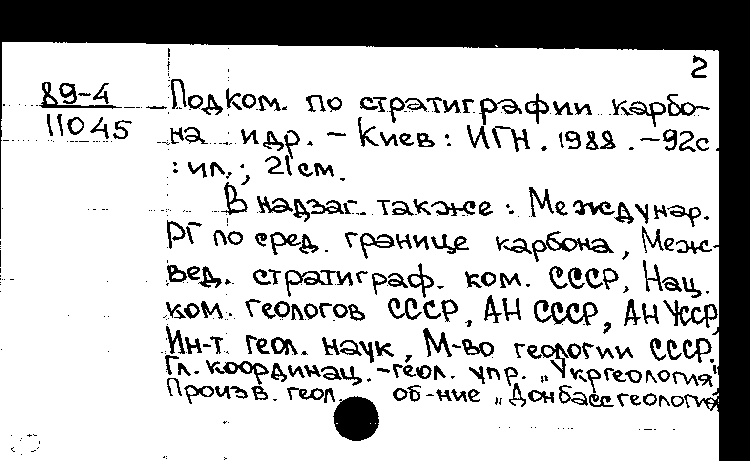 2
89-4
11045
Подком. по стратиграфии карбо-
на идр. - Киев : ИГН. 1988. -92с.
: ил.; 21см.
В надзаг. также : Междунар.
РГ по сред. границе карбона, Меж-
вед. стратиграф. ком. СССР, Нац.
ком. геологов СССР, АН СССР, АН УССР,
Ин-т геол. наук, М-во геологии СССР.
Гл. координац.-геол. упр. „Укргеология"
Произв. геол. об-ние „Донбассгеология